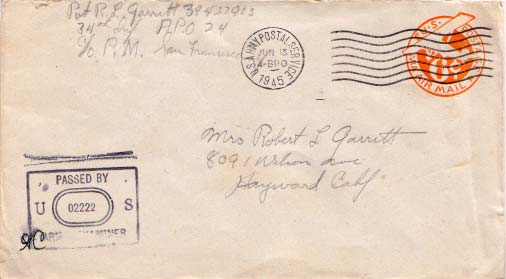 Pvt R. L. Garrett 39427913
34th Inf APO 24
c/o P.M. San Francisco
U.S. ARMY POSTAL SERVICE
JUN 13
4-BPO
1945
U.S. POSTAGE
AIR MAIL
Mrs Robert L Garrett
8091 Wilson Ave
Hayward Calif
PASSED BY
U 02222 S
ARMY EXAMINER